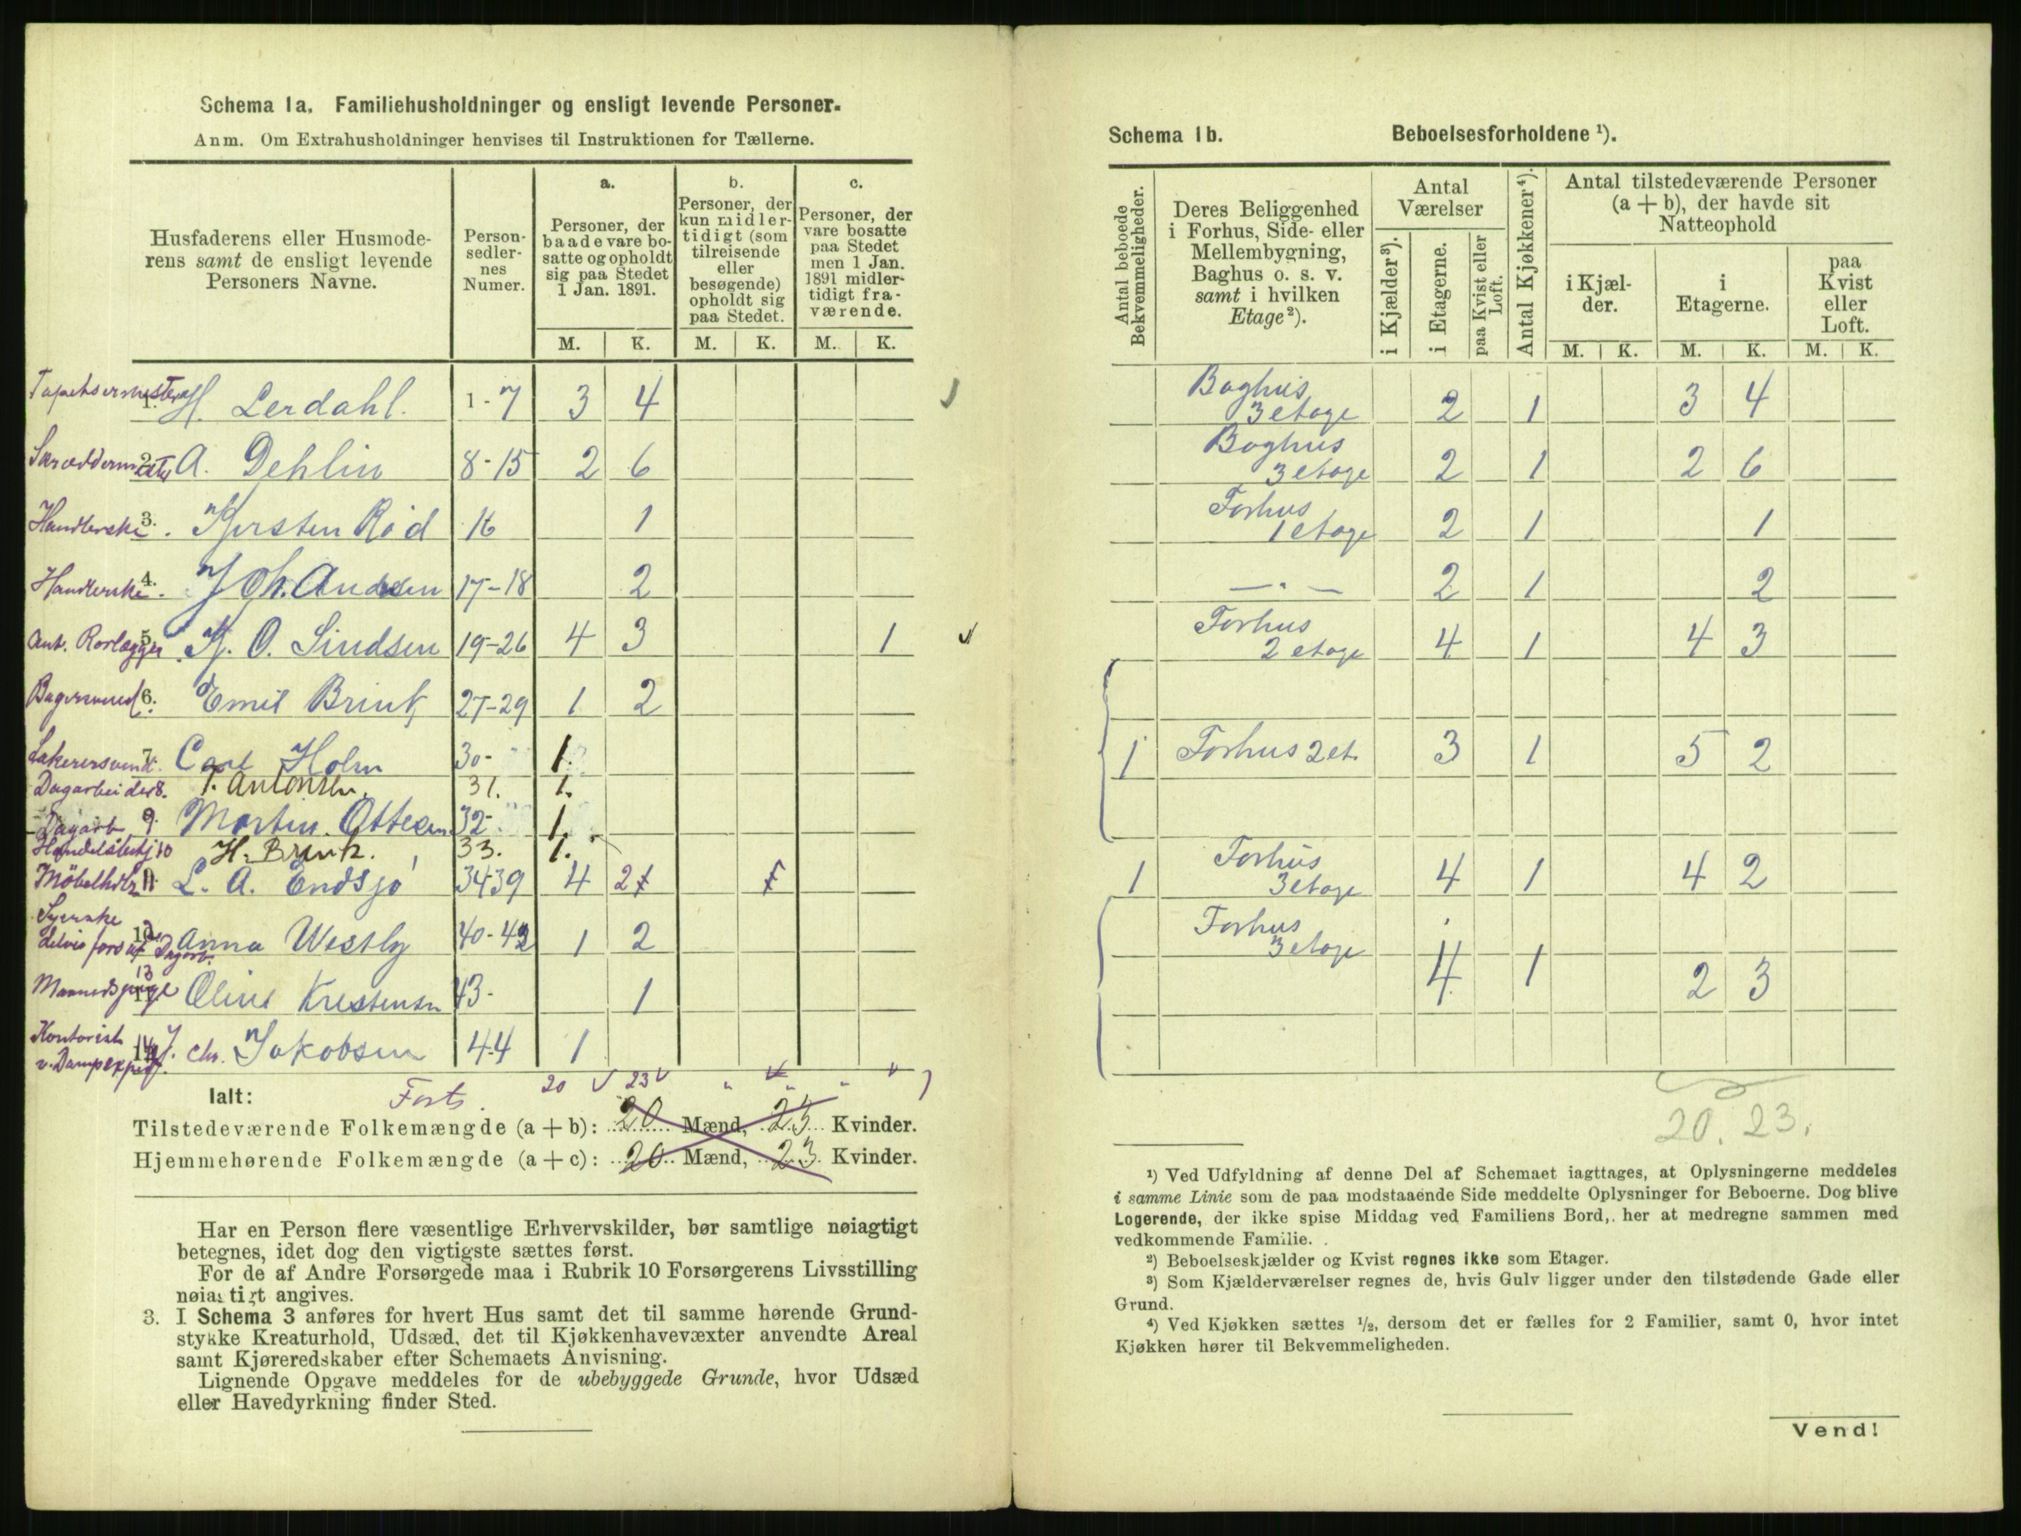 Schema 1a. Familiehusholdninger og ensligt levende Personer.
Anm. Om Extrahusholdninger henvises til Instruktionen for Tællerne.
Husfaderens eller Husmode-
rens samt de ensligt levende
Personers Navne.
Person-
sedler-
nes
Numer.
a.
Personer, der
baade vare bo-
satte og opholdt
sig paa Stedet
1 Jan. 1891.
b.
Personer, der
kun midler-
tidigt (som
tilreisende
eller
besøgende)
opholdt sig
paa Stedet.
c.
Personer, der
vare bosatte
paa Stedet
men 1 Jan.
1891 midler-
tidigt fra-
værende.
M. K. M. K. M. K.
Tapetsermester 1. H. Lerdahl. 1-7 3 4
2. A. Dehlin 8-15 2 6
Handlerske 3. Kjersten Rød 16 1
Handlerske 4. Joh. Andersen 17-18 2
Ant. Rørlægger 5. O. Lindsen 19-26 4 3 1
Bagersvend 6. Emil Brink 27-29 1 2
Lakerersvend 7. Carl Holm 30- 1.
Dagarbeider 8. T. Antonsen. 31. 1.
Dagarb 9. Martin Ottesen 32- 1.
10 H. Brink. 33. 1.
11. L. A. Endsjø 34-39 4 2
Syerske
12. Anna Westby 40-42 1 2
13 Oline Kristensen 43- 1
Kontorist
14. J. Chr. Jakobsen 44 1
v. Dampexped.
Ialt: Forts. 20 23
Tilstedeværende Folkemængde (a + b): 20 Mænd, 23 Kvinder.
Hjemmehørende Folkemængde (a + c): 20 Mænd, 23 Kvinder.
Har en Person flere væsentlige Erhvervskilder, bør samtlige nøiagtigt
betegnes, idet dog den vigtigste sættes først.
For de af Andre Forsørgede maa i Rubrik 10 Forsørgerens Livsstilling
nøiagtigt angives.
3. I Schema 3 anføres for hvert Hus samt det til samme hørende Grund-
stykke Kreaturhold, Udsæd, det til Kjøkkenhavevæxter anvendte Areal
samt Kjøreredskaber efter Schemaets Anvisning.
Lignende Opgave meddeles for de ubebyggede Grunde, hvor Udsæd
eller Havedyrkning finder Sted.
Schema 1b. Beboelsesforholdene ¹).
Antal beboede
Bekvemmeligheder.
Deres Beliggenhed
i Forhus, Side- eller
Mellembygning,
Baghus o. s. v.
samt i hvilken
Etage²).
Antal
Værelser
i Kjælder³).
i Etagerne.
paa Kvist eller
Loft.
Antal Kjøkkener⁴).
Antal tilstedeværende Personer
(a + b), der havde sit
Natteophold
i Kjæl-
der.
i
Etagerne.
paa
Kvist
eller
Loft.
M. K. M. K. M. K.
Baghus
3 etage 2 1 3 4
Baghus
3 etage 2 1 2 6
Forhus
1 etage 2 1 1
— " — 2 1 2
Forhus
2 etage 4 1 4 3
1 Forhus 2 et. 3 1 5 2
1 Forhus
3 etage 4 1 4 2
Forhus
3 etage
4 1 2 3
20. 23.
¹) Ved Udfyldning af denne Del af Schemaet iagttages, at Oplysningerne meddeles
i samme Linie som de paa modstaaende Side meddelte Oplysninger for Beboerne. Dog blive
Logerende, der ikke spise Middag ved Familiens Bord, her at medregne sammen med
vedkommende Familie.
²) Beboelseskjælder og Kvist regnes ikke som Etager.
³) Som Kjælderværelser regnes de, hvis Gulv ligger under den tilstødende Gade eller
Grund.
⁴) Ved Kjøkken sættes ¹/₂, dersom det er fælles for 2 Familier, samt 0, hvor intet
Kjøkken hører til Bekvemmeligheden.
Vend!